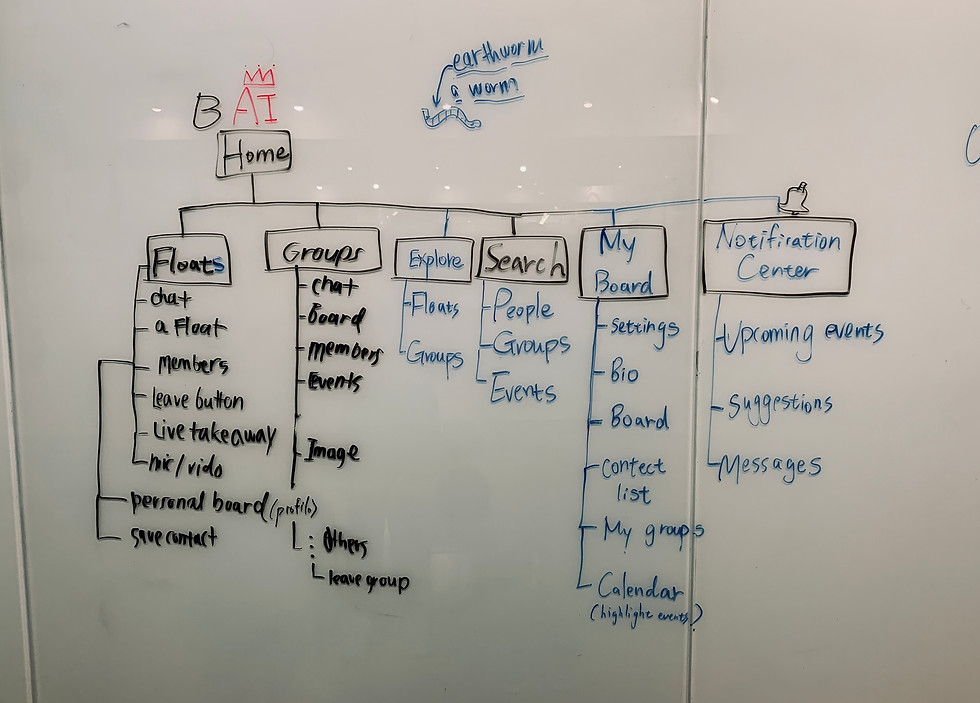 earthworm
a worm
B AI
Home
Floats
chat
a Float
members
leave button
Live takeaway
mic/vido
personal board (profile)
save contact
Groups
chat
Board
members
Events
Image
Others
leave group
Explore
Floats
Groups
Search
People
Groups
Events
My
Board
Settings
Bio
Board
Contect
list
My groups
Calendar
(highlight events!)
Notifiration
Center
Upcoming events
Suggestions
Messages